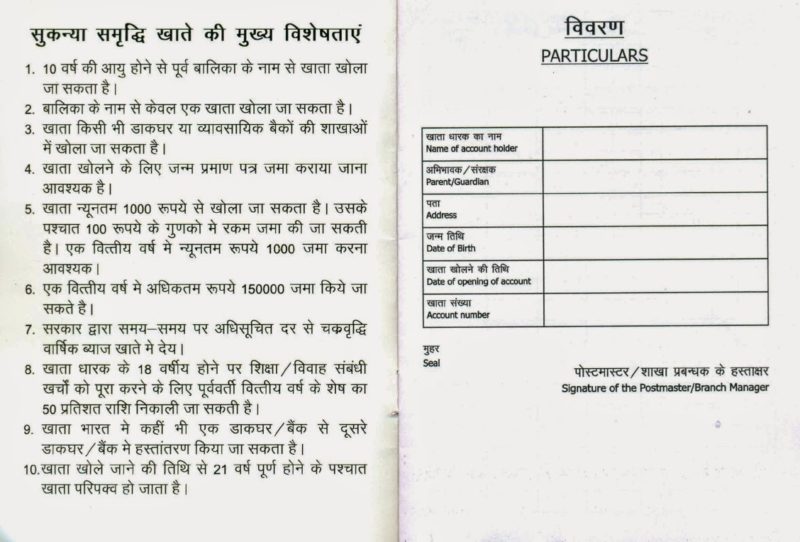 सुकन्या समृद्धि खाते की मुख्य विशेषताएं
1. 10 वर्ष की आयु होने से पूर्व बालिका के नाम से खाता खोला
जा सकता है।
2. बालिका के नाम से केवल एक खाता खोला जा सकता है।
3. खाता किसी भी डाकघर या व्यावसायिक बैकों की शाखाओं
में खोला जा सकता है।
4. खाता खोलने के लिए जन्म प्रमाण पत्र जमा कराया जाना
आवश्यक है।
5. खाता न्यूनतम 1000 रूपये से खोला जा सकता है। उसके
पश्चात 100 रूपये के गुणको मे रकम जमा की जा सकती
है। एक वित्तीय वर्ष मे न्यूनतम रूपये 1000 जमा करना
आवश्यक।
6. एक वित्तीय वर्ष मे अधिकतम रूपये 150000 जमा किये जा
सकते है।
7. सरकार द्वारा समय–समय पर अधिसूचित दर से चक्रवृद्धि
वार्षिक ब्याज खाते मे देय।
8. खाता धारक के 18 वर्षीय होने पर शिक्षा/विवाह संबंधी
खर्चों को पूरा करने के लिए पूर्ववर्ती वित्तीय वर्ष के शेष का
50 प्रतिशत राशि निकाली जा सकती है।
9. खाता भारत मे कहीं भी एक डाकघर/बैंक से दूसरे
डाकघर/बैंक मे हस्तांतरण किया जा सकता है।
10. खाता खोले जाने की तिथि से 21 वर्ष पूर्ण होने के पश्चात
खाता परिपक्व हो जाता है।
विवरण
PARTICULARS
खाता धारक का नाम
Name of account holder
अभिभावक/संरक्षक
Parent/Guardian
पता
Address
जन्म तिथि
Date of Birth
खाता खोलने की तिथि
Date of opening of account
खाता संख्या
Account number
मुहर
Seal
पोस्टमास्टर/शाखा प्रबन्धक के हस्ताक्षर
Signature of the Postmaster/Branch Manager